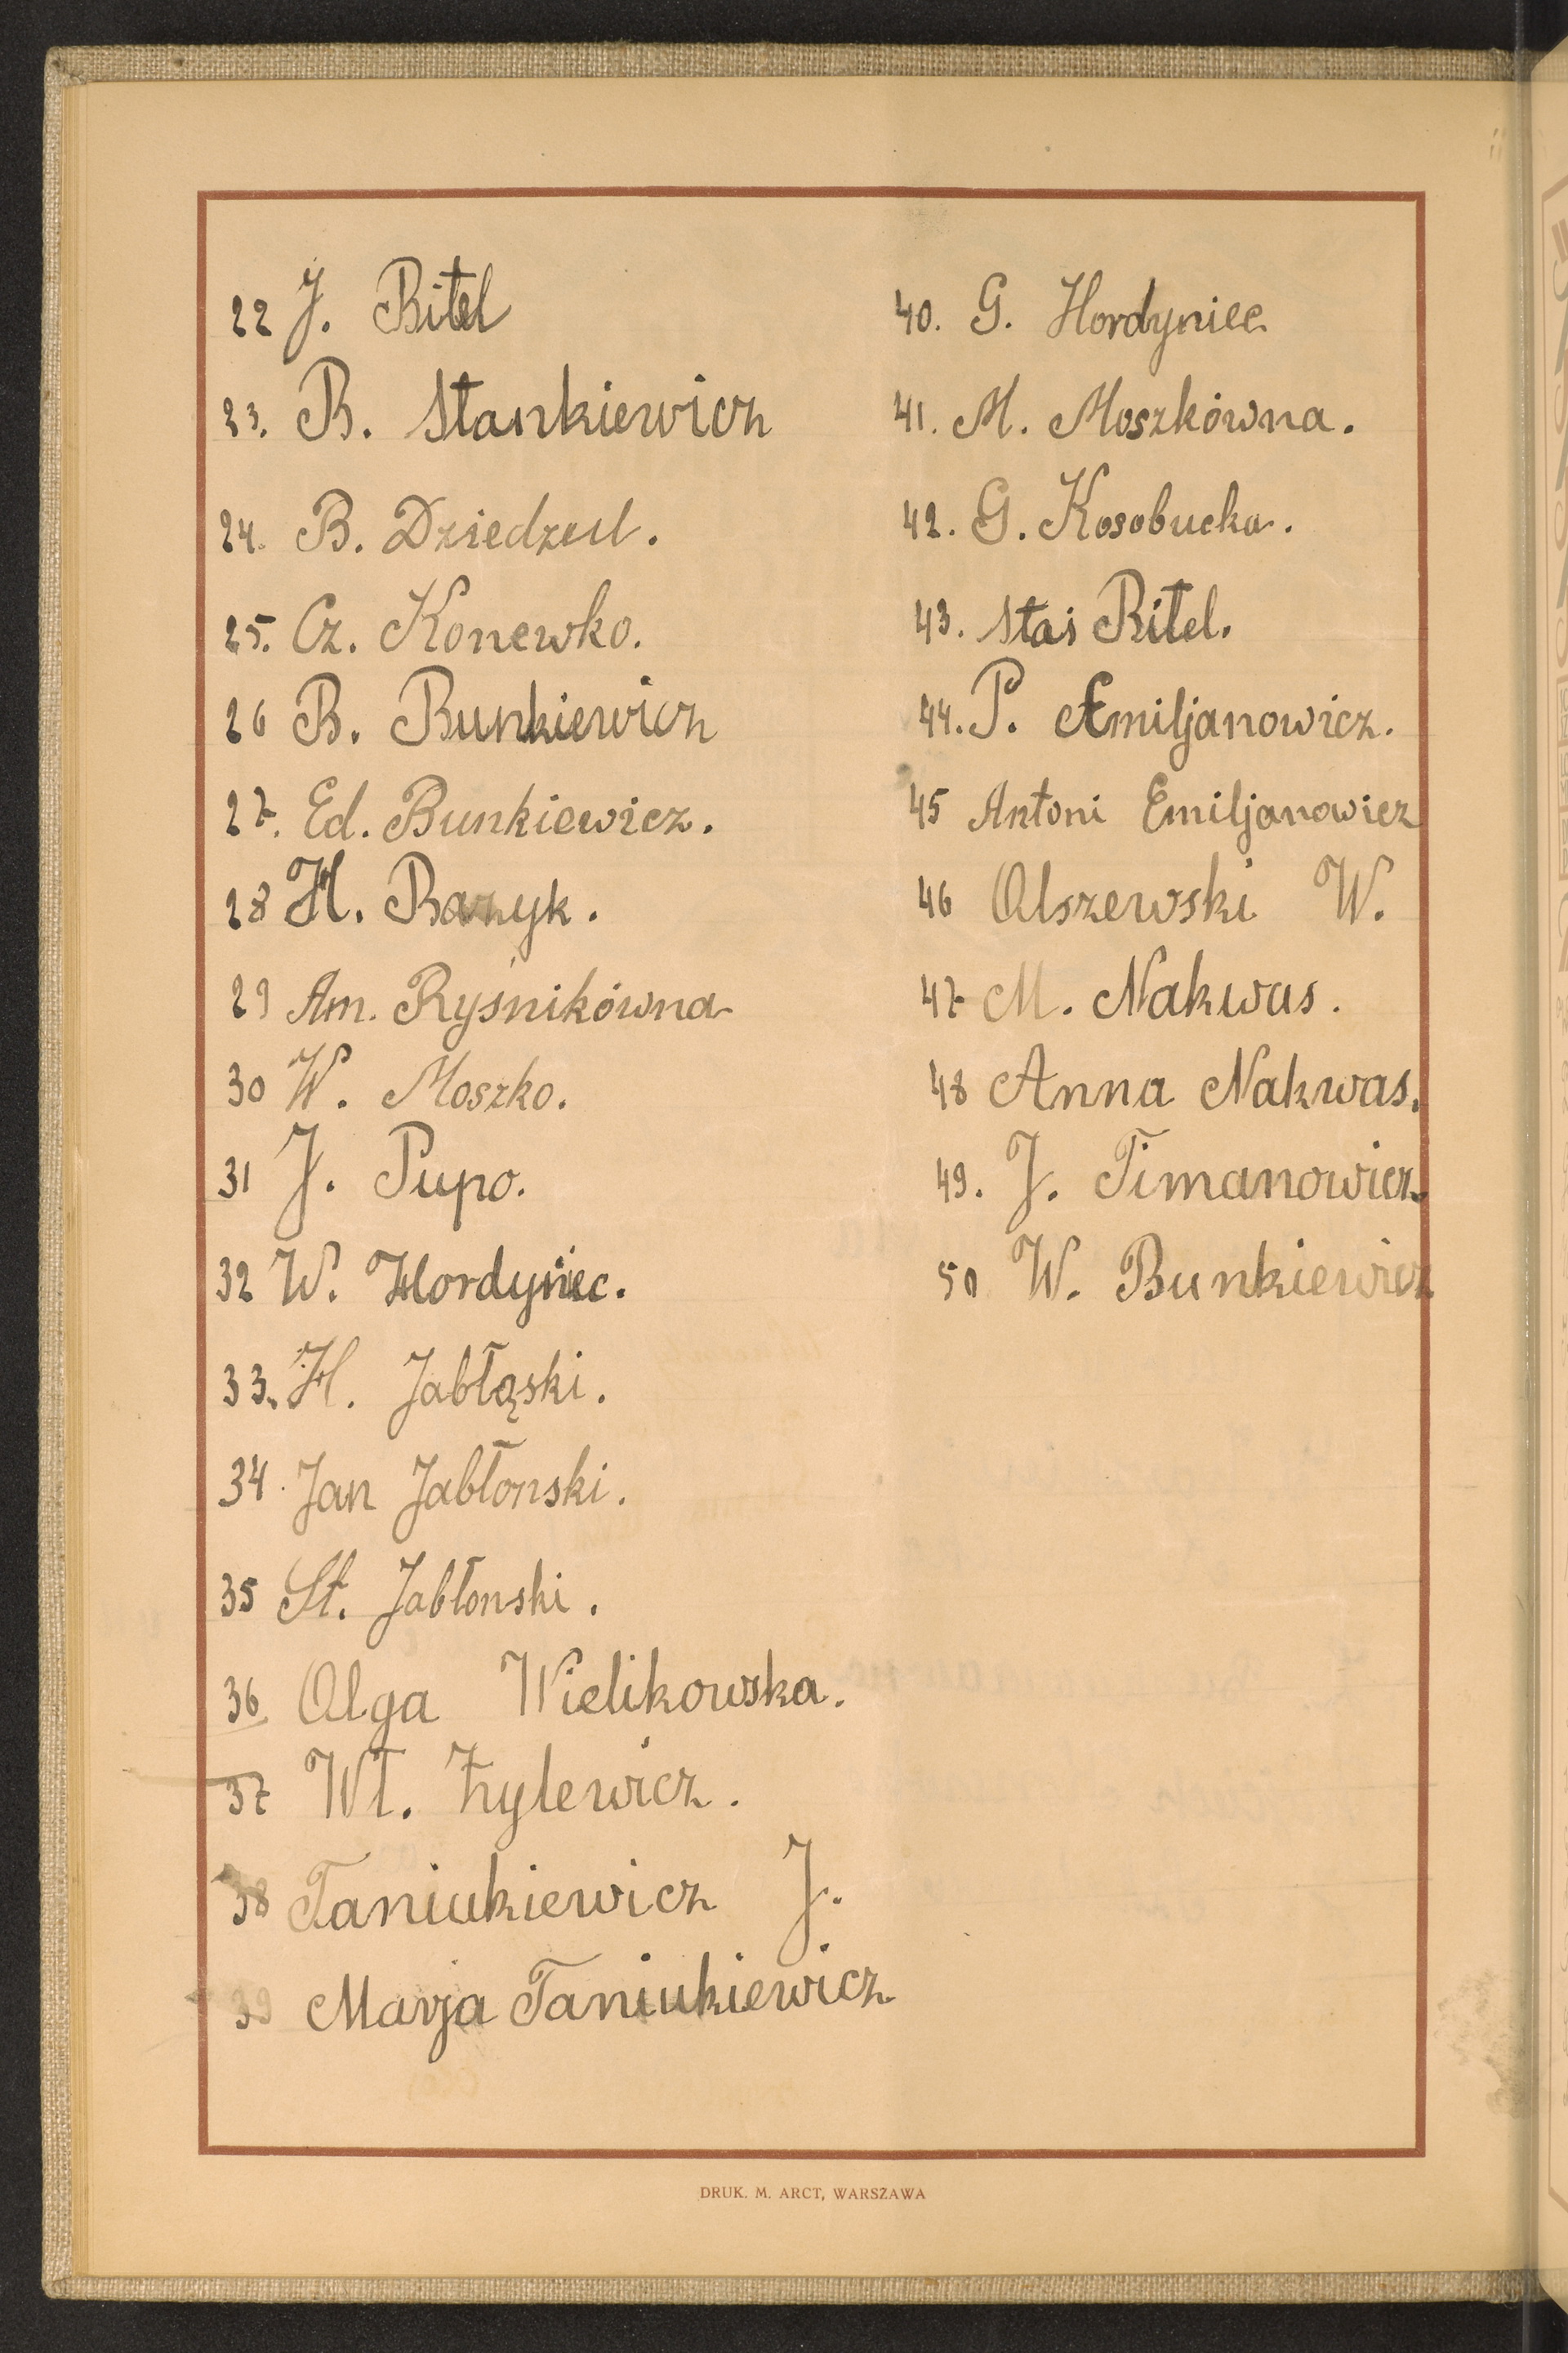 22 J. Bitel
23. B. Stankiewicz
24. B. Dziedzul.
25. Cz. Konewko.
26 B. Bunkiewicz
27. Ed. Bunkiewicz.
28 H. Bazyk.
29 Am. Ryśnikówna
30 W. Moszko.
31 J. Pupo.
32 W. Hordyniec.
33. H. Jabłąski.
34. Jan Jabłonski.
35 St. Jabłonski.
36 Olga Wielikowska.
37 Wł. Żylewicz.
38 Taniukiewicz J.
39 Marja Taniukiewicz
40. G. Hordyniec
41. M. Moszkówna.
42. G. Kosobucka.
43. Staś Bitel.
44. P. Emiljanowicz.
45 Antoni Emiljanowicz
46 Olszewski W.
47 M. Nakwas.
48 Anna Nakwas.
49. J. Timanowicz
50 W. Bunkiewicz
DRUK. M. ARCT, WARSZAWA